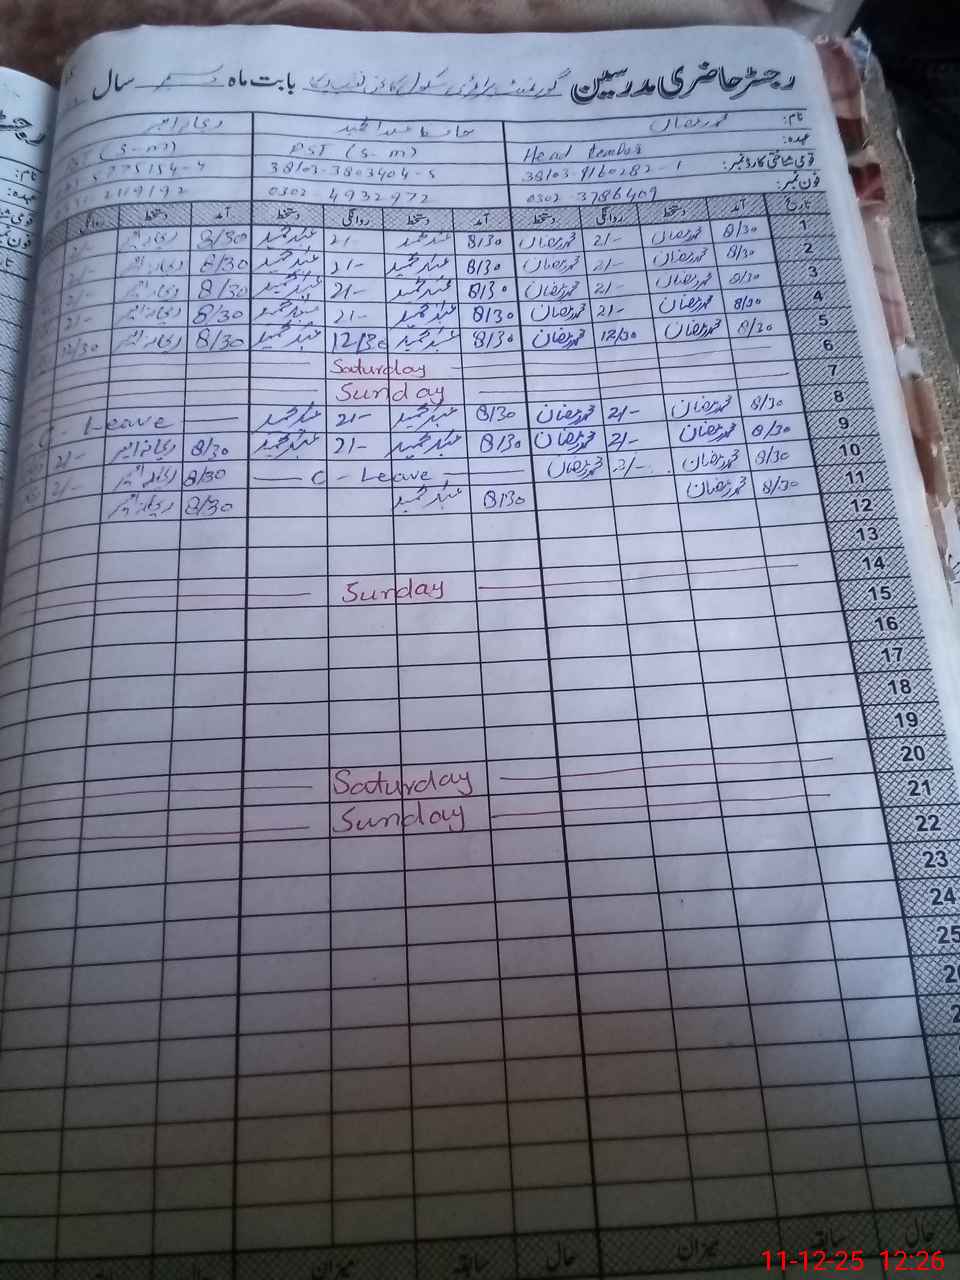 رجسٹر حاضری مدرسین گورنمنٹ پرائمری سکول بابت ماہ دسمبر سال
نام: محمد رمضان حافظ عبدالحمید
عہدہ: Head Teacher PST (S-M) PST (S-M)
قومی شناختی کارڈ نمبر: 38103-9160282-1 38103-3803404-5 5775154-7
فون نمبر: 0302-3786409 0302-4932972 2119192
تاریخ آمد دستخط روانگی دستخط آمد دستخط روانگی دستخط آمد دستخط روانگی
1 8/30 محمد رمضان 2/- محمد رمضان 8/30 عبدالحمید 2/- عبدالحمید 8/30 2/-
2 8/30 محمد رمضان 2/- محمد رمضان 8/30 عبدالحمید 2/- عبدالحمید 8/30 2/-
3 8/30 محمد رمضان 2/- محمد رمضان 8/30 عبدالحمید 2/- عبدالحمید 8/30 2/-
4 8/30 محمد رمضان 2/- محمد رمضان 8/30 عبدالحمید 2/- عبدالحمید 8/30 2/-
5 8/30 محمد رمضان 12/30 محمد رمضان 8/30 عبدالحمید 12/30 عبدالحمید 8/30 12/30
6 Saturday
7 Sunday
8 8/30 محمد رمضان 2/- محمد رمضان 8/30 عبدالحمید 2/- عبدالحمید C - Leave
9 8/30 محمد رمضان 2/- محمد رمضان 8/30 عبدالحمید 2/- عبدالحمید 8/30 2/-
10 8/30 محمد رمضان 2/- محمد رمضان C - Leave 8/30 2/-
11 8/30 محمد رمضان 8/30 عبدالحمید 8/30
12
13
14 Sunday
15
16
17
18
19
20 Saturday
21 Sunday
22
23
24
25
میزان سابقہ حال میزان سابقہ حال
11-12-25 12:26